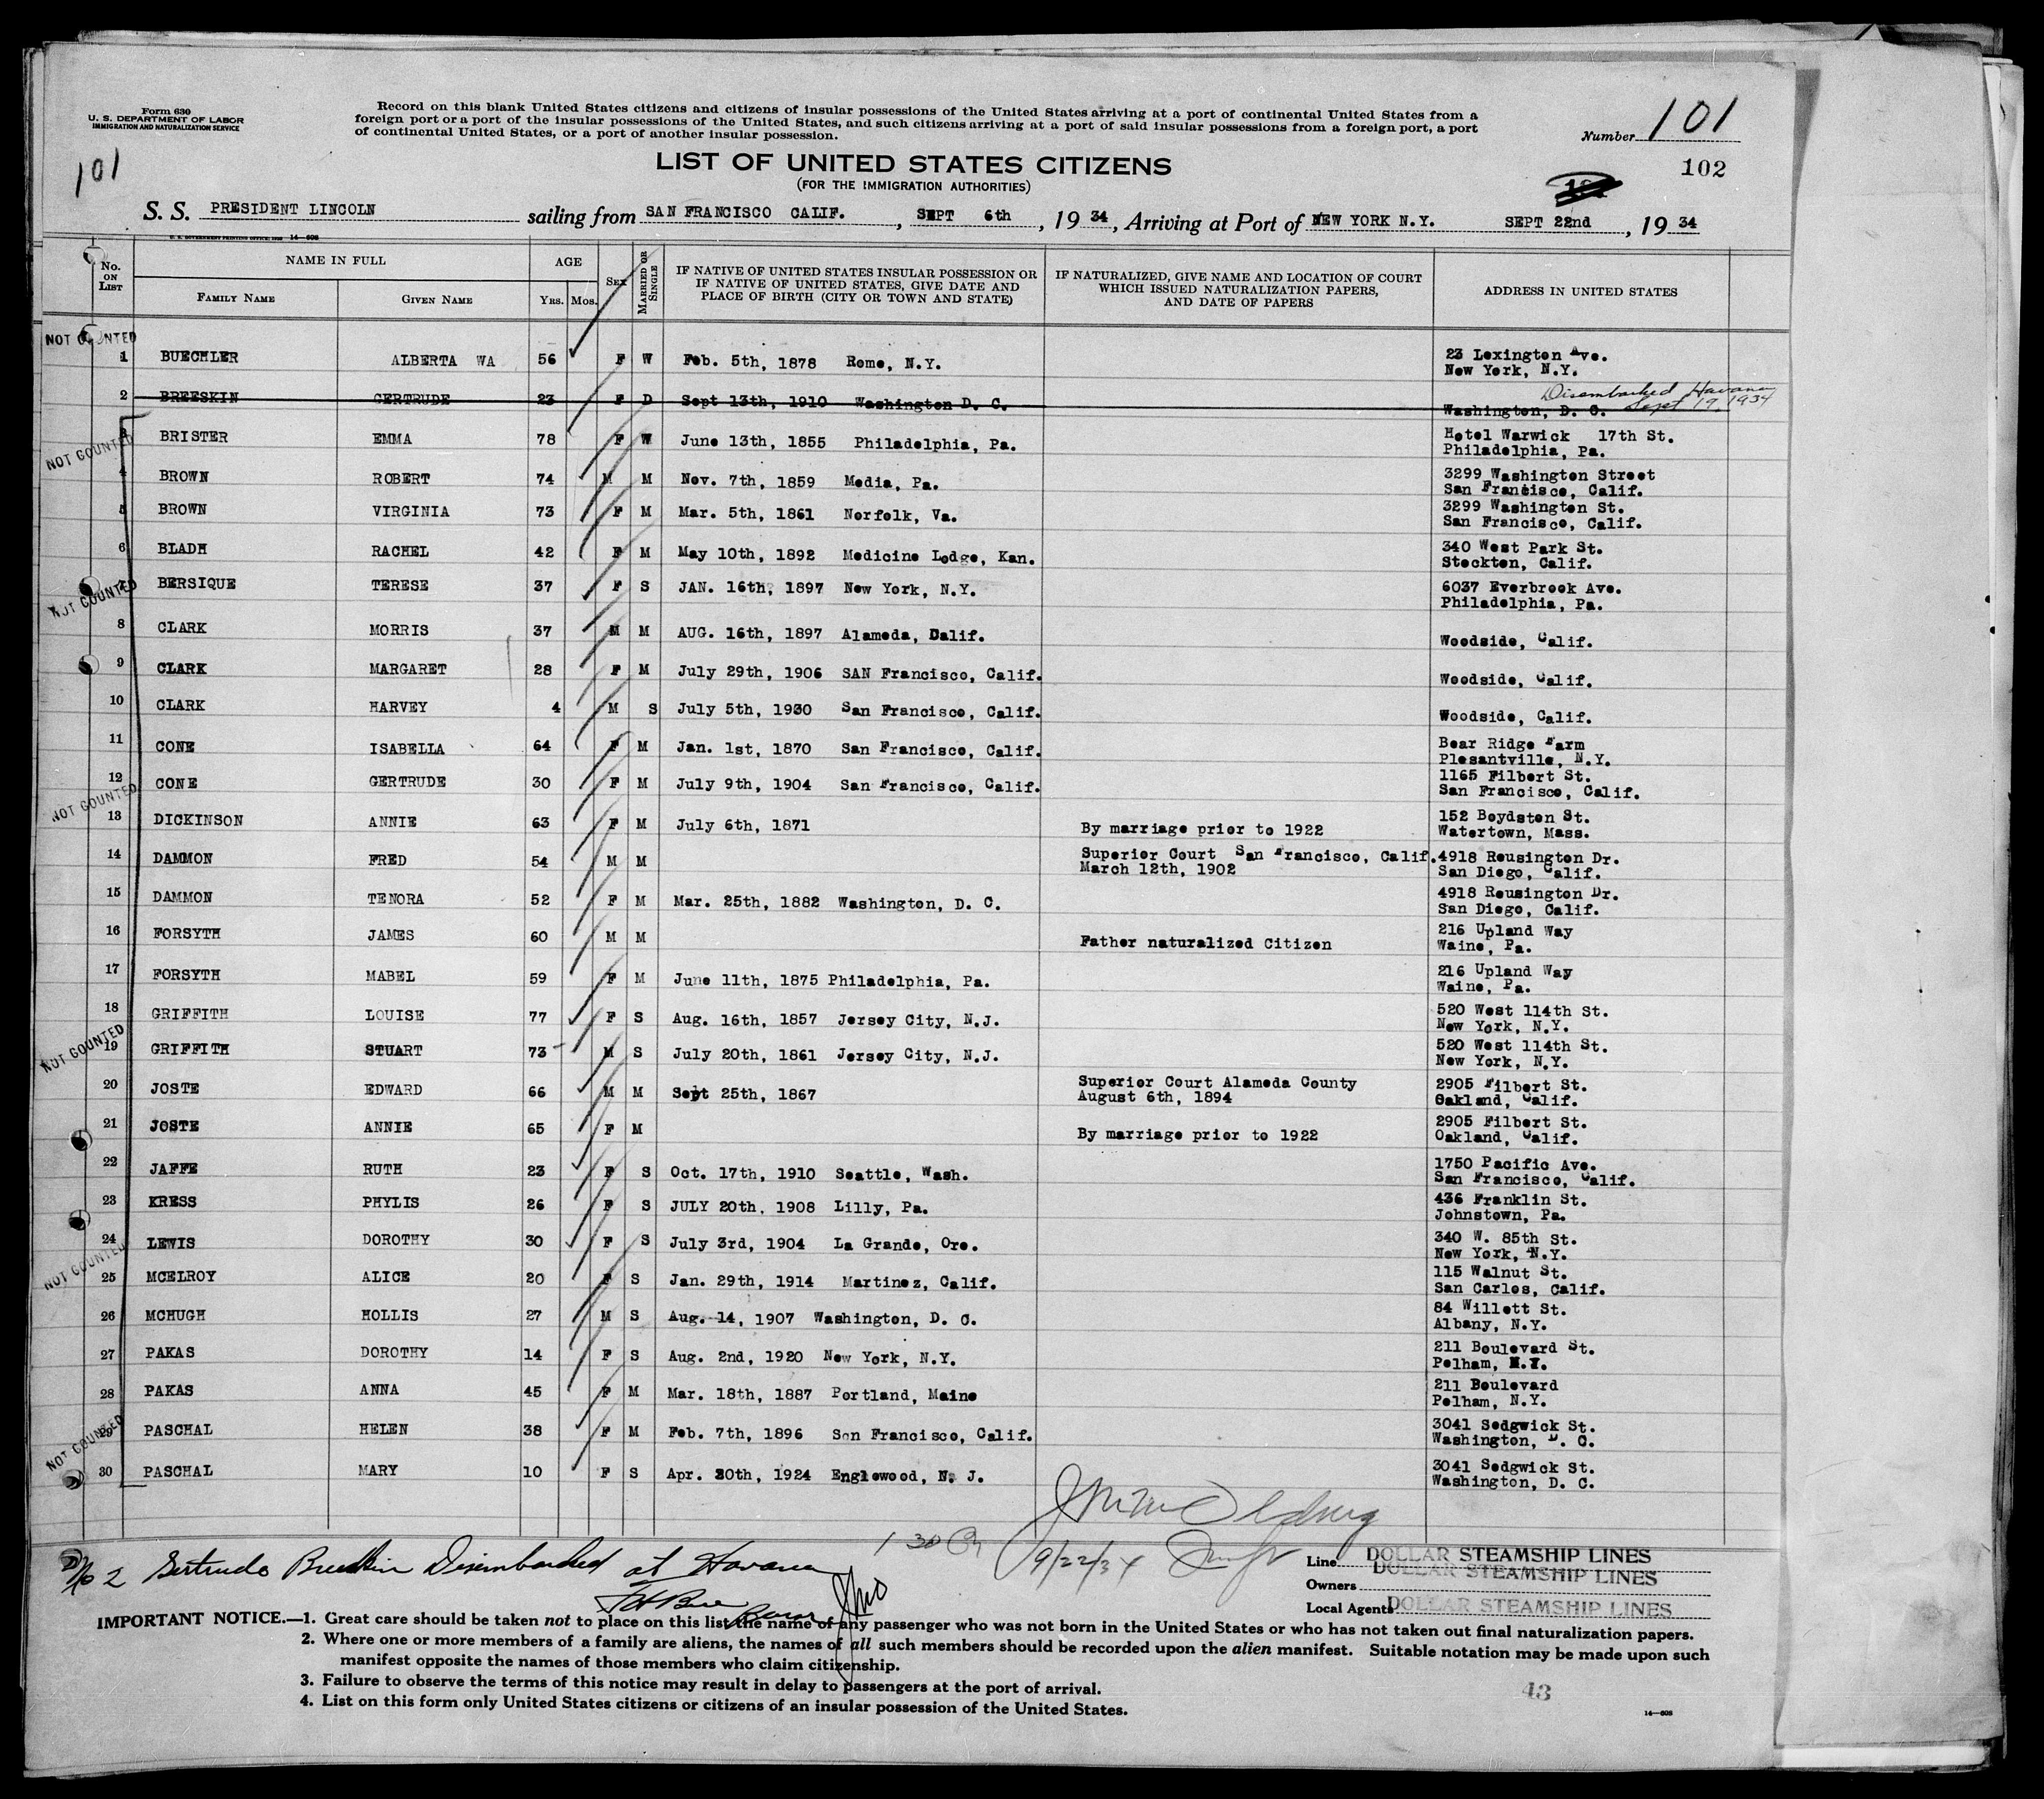 Form 630
U. S. DEPARTMENT OF LABOR
IMMIGRATION AND NATURALIZATION SERVICE
Record on this blank United States citizens and citizens of insular possessions of the United States arriving at a port of continental United States from a
foreign port or a port of the insular possessions of the United States, and such citizens arriving at a port of said insular possessions from a foreign port, a port
of continental United States, or a port of another insular possession.
Number 101
101
102
LIST OF UNITED STATES CITIZENS
(FOR THE IMMIGRATION AUTHORITIES)
S. S. PRESIDENT LINCOLN sailing from SAN FRANCISCO CALIF. , SEPT 6th , 19 34 , Arriving at Port of NEW YORK N.Y. SEPT 22nd , 19 34
U. S. GOVERNMENT PRINTING OFFICE 14-608
No. ON LIST NAME IN FULL FAMILY NAME GIVEN NAME AGE YRS. MOS. SEX MARRIED OR SINGLE IF NATIVE OF UNITED STATES INSULAR POSSESSION OR IF NATIVE OF UNITED STATES, GIVE DATE AND PLACE OF BIRTH (CITY OR TOWN AND STATE) IF NATURALIZED, GIVE NAME AND LOCATION OF COURT WHICH ISSUED NATURALIZATION PAPERS, AND DATE OF PAPERS ADDRESS IN UNITED STATES
NOT COUNTED
1 BUECHLER ALBERTA WA 56 F W Feb. 5th, 1878 Rome, N.Y. 23 Lexington Ave.
New York, N.Y.
2 BREESKIN GERTRUDE 23 F D Sept 13th, 1910 Washington D. C. Washington, D. C. Disembarked Havana
Sept 19, 1934
3 BRISTER EMMA 78 F W June 13th, 1855 Philadelphia, Pa. Hotel Warwick 17th St.
Philadelphia, Pa.
NOT COUNTED
4 BROWN ROBERT 74 M M Nov. 7th, 1859 Media, Pa. 3299 Washington Street
San Francisco, Calif.
5 BROWN VIRGINIA 73 F M Mar. 5th, 1861 Norfolk, Va. 3299 Washington St.
San Francisco, Calif.
6 BLADH RACHEL 42 F M May 10th, 1892 Medicine Lodge, Kan. 340 West Park St.
Stockton, Calif.
7 BERSIQUE TERESE 37 F S JAN. 16th, 1897 New York, N.Y. 6037 Everbrook Ave.
Philadelphia, Pa.
NOT COUNTED
8 CLARK MORRIS 37 M M AUG. 16th, 1897 Alameda, Calif. Woodside, Calif.
9 CLARK MARGARET 28 F M July 29th, 1906 SAN Francisco, Calif. Woodside, Calif.
10 CLARK HARVEY 4 M S July 5th, 1930 San Francisco, Calif. Woodside, Calif.
11 CONE ISABELLA 64 F M Jan. 1st, 1870 San Francisco, Calif. Bear Ridge Farm
Plesantville, N.Y.
12 CONE GERTRUDE 30 F M July 9th, 1904 San Francisco, Calif. 1165 Filbert St.
San Francisco, Calif.
NOT COUNTED
13 DICKINSON ANNIE 63 F M July 6th, 1871 By marriage prior to 1922 152 Boydston St.
Watertown, Mass.
14 DAMMON FRED 54 M M Superior Court San Francisco, Calif. 4918 Reusington Dr.
March 12th, 1902 San Diego, Calif.
15 DAMMON TENORA 52 F M Mar. 25th, 1882 Washington, D. C. 4918 Reusington Dr.
San Diego, Calif.
16 FORSYTH JAMES 60 M M Father naturalized Citizen 216 Upland Way
Waine, Pa.
17 FORSYTH MABEL 59 F M June 11th, 1875 Philadelphia, Pa. 216 Upland Way
Waine, Pa.
18 GRIFFITH LOUISE 77 F S Aug. 16th, 1857 Jersey City, N.J. 520 West 114th St.
New York, N.Y.
NOT COUNTED
19 GRIFFITH STUART 73 M S July 20th, 1861 Jersey City, N.J. 520 West 114th St.
New York, N.Y.
20 JOSTE EDWARD 66 M M Sept 25th, 1867 Superior Court Alameda County 2905 Filbert St.
August 6th, 1894 Oakland, Calif.
21 JOSTE ANNIE 65 F M By marriage prior to 1922 2905 Filbert St.
Oakland, Calif.
22 JAFFE RUTH 23 F S Oct. 17th, 1910 Seattle, Wash. 1750 Pacific Ave.
San Francisco, Calif.
23 KRESS PHYLIS 26 F S JULY 20th. 1908 Lilly, Pa. 436 Franklin St.
Johnstown, Pa.
24 LEWIS DOROTHY 30 F S July 3rd, 1904 La Grande, Ore. 340 W. 85th St.
New York, N.Y.
NOT COUNTED
25 MCELROY ALICE 20 F S Jan. 29th, 1914 Martinez, Calif. 115 Walnut St.
San Carlos, Calif.
26 MCHUGH HOLLIS 27 M S Aug. 14, 1907 Washington, D. C. 84 Willett St.
Albany, N.Y.
27 PAKAS DOROTHY 14 F S Aug. 2nd, 1920 New York, N.Y. 211 Boulevard St.
Pelham, N.Y.
28 PAKAS ANNA 45 F M Mar. 18th, 1887 Portland, Maine 211 Boulevard
Pelham, N.Y.
29 PASCHAL HELEN 38 F M Feb. 7th, 1896 San Francisco, Calif. 3041 Sedgwick St.
Washington, D. C.
NOT COUNTED
30 PASCHAL MARY 10 F S Apr. 20th, 1924 Englewood, N. J. 3041 Sedgwick St.
Washington, D. C.
No 2 Gertrude Breeskin Disembarked at Havana
1 30
9/22/34
Line DOLLAR STEAMSHIP LINES
Owners DOLLAR STEAMSHIP LINES
Local Agents DOLLAR STEAMSHIP LINES
IMPORTANT NOTICE.—1. Great care should be taken not to place on this list the name of any passenger who was not born in the United States or who has not taken out final naturalization papers.
2. Where one or more members of a family are aliens, the names of all such members should be recorded upon the alien manifest. Suitable notation may be made upon such
manifest opposite the names of those members who claim citizenship.
3. Failure to observe the terms of this notice may result in delay to passengers at the port of arrival.
4. List on this form only United States citizens or citizens of an insular possession of the United States.
43
14-608